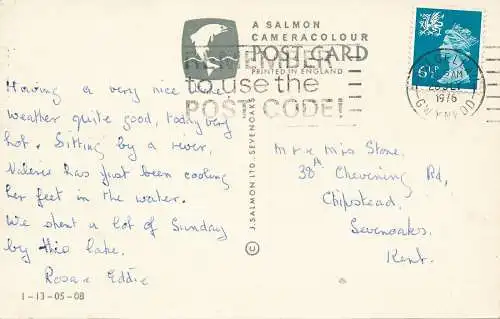 A SALMON
CAMERACOLOUR
POST CARD
PRINTED IN ENGLAND
REMEMBER
to use the
POST CODE!
6½P
AM
1976
GWYNEDD
Having a very nice time
weather quite good, today very
hot. Sitting by a river,
Valerie has just been cooling
her feet in the water.
We spent a lot of Sunday
by this lake.
Rosa & Eddie
1-13-05-08
© J. SALMON LTD. SEVENOAKS
Mr & Mrs Stone.
38A Chevening Rd,
Chipstead,
Sevenoaks,
Kent.